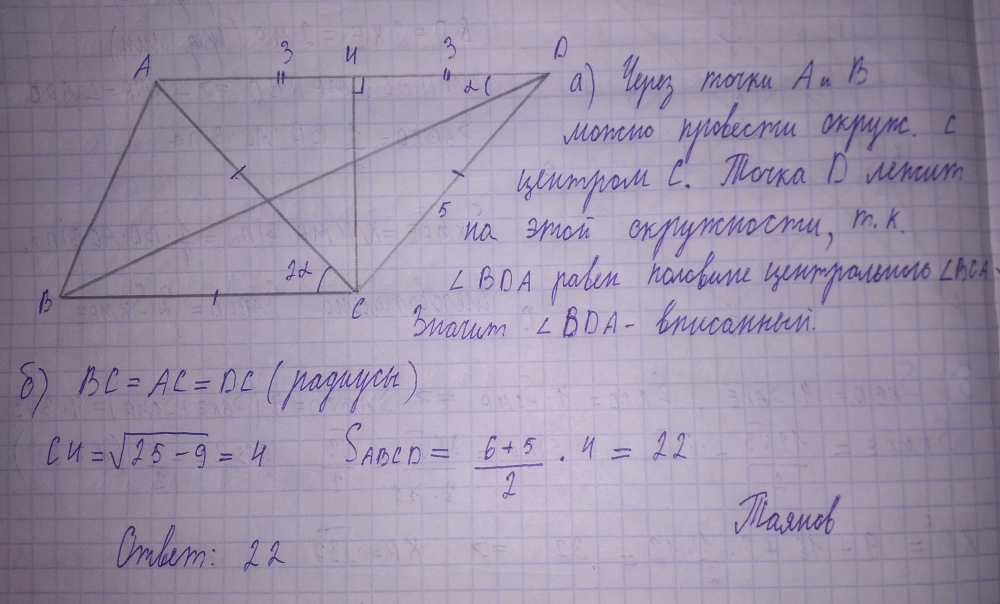 A 3 H 3 D
2α
5
2α
B C
а) Через точки A и B
можно провести окруж. с
центром C. Точка D лежит
на этой окружности, т.к.
∠BDA равен половине центрального ∠BCA.
Значит ∠BDA - вписанный.
б) BC = AC = DC (радиусы)
CH = √25-9 = 4 SABCD = 6+5/2 · 4 = 22
Таянов
Ответ: 22